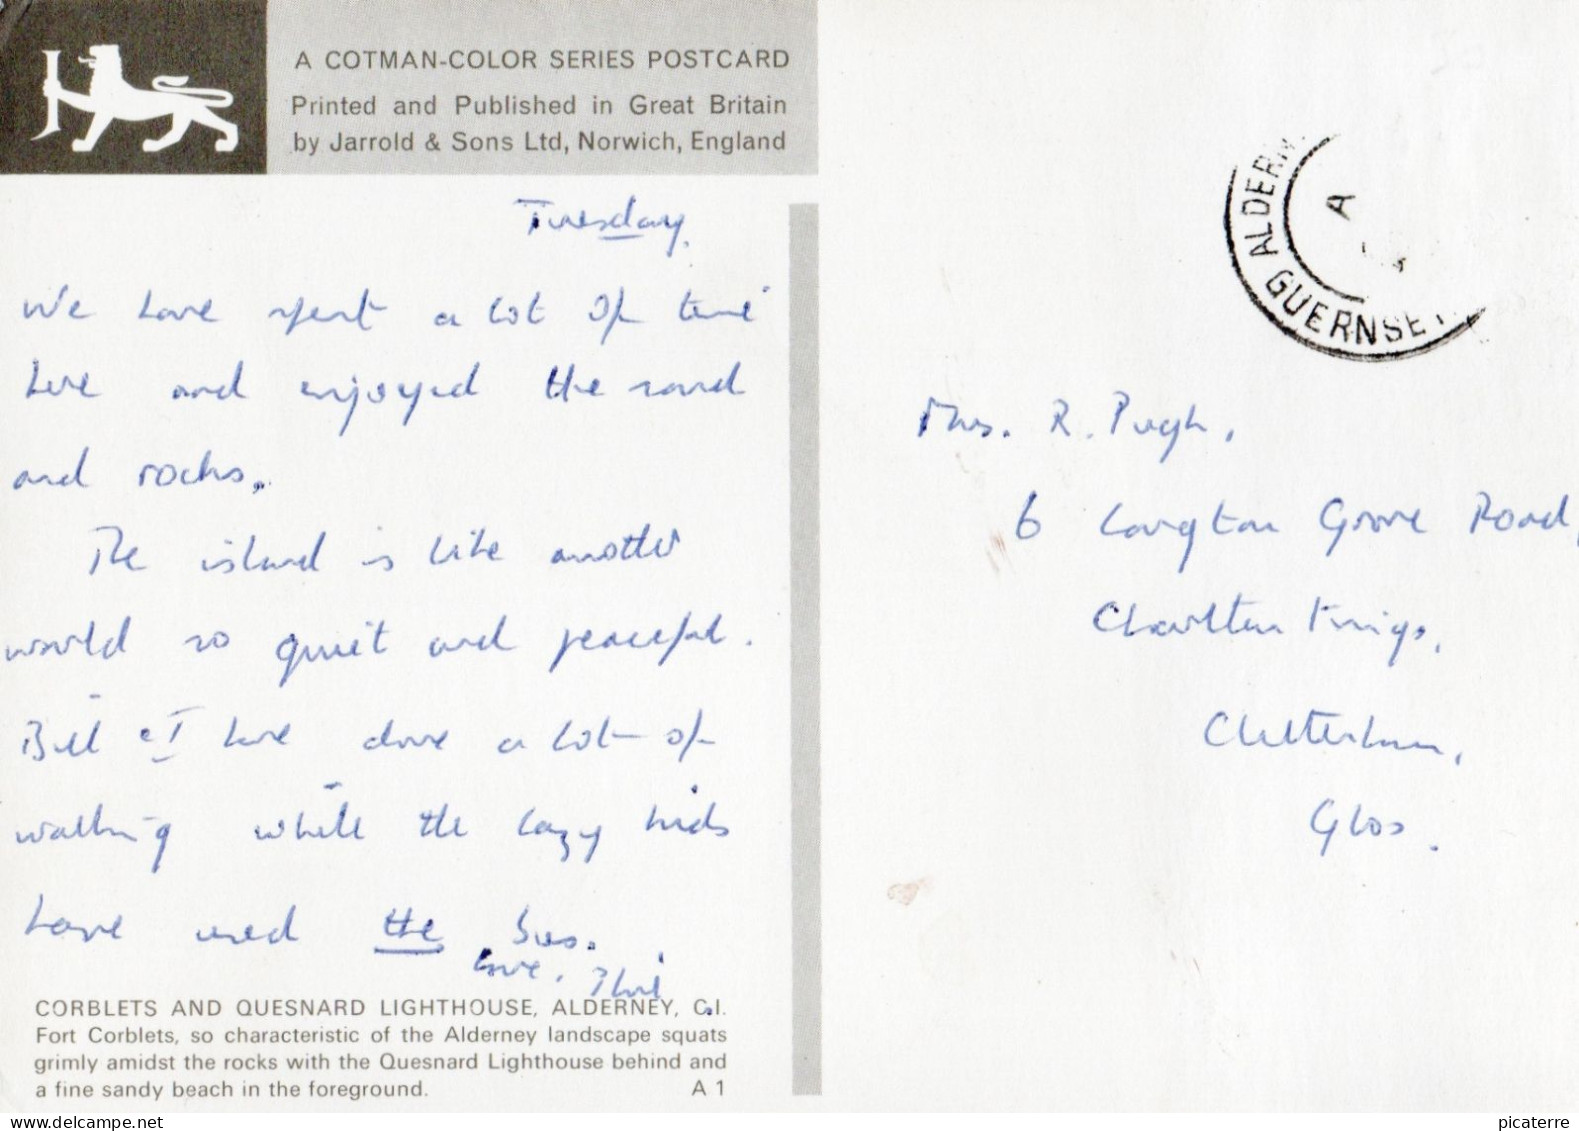 A COTMAN-COLOR SERIES POSTCARD
Printed and Published in Great Britain
by Jarrold & Sons Ltd, Norwich, England
Tuesday.
We have spent a lot of time
here and enjoyed the sand
and rocks.
The island is like another
world so quiet and peaceful.
Bill & I have done a lot of
walking while the lazy kids
have used the bus.
Love,
CORBLETS AND QUESNARD LIGHTHOUSE, ALDERNEY, C.I.
Fort Corblets, so characteristic of the Alderney landscape squats
grimly amidst the rocks with the Quesnard Lighthouse behind and
a fine sandy beach in the foreground. A 1
ALDERN
A
GUERNSEY
Mrs. R. Pugh,
6 Langton Grove Road,
Charlton Kings,
Cheltenham,
Glos.
picaterre